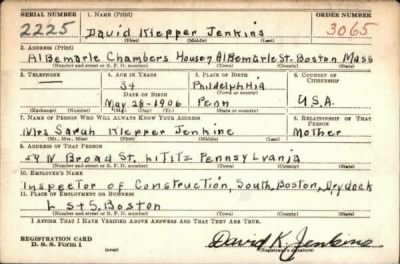 SERIAL NUMBER 1. NAME (Print) ORDER NUMBER
2225 David Klepper Jenkins 3065
(First) (Middle) (Last)
2. ADDRESS (Print)
AlBemarle Chambers House 7 AlBemarle St. Boston Mass
(Number and street or R. F. D. number) (Town) (County) (State)
3. TELEPHONE 4. AGE IN YEARS 5. PLACE OF BIRTH 6. COUNTRY OF CITIZENSHIP
34 Philadelphia
DATE OF BIRTH (Town or county)
May 28-1906 Penn U.S.A.
(Exchange) (Number) (Mo.) (Day) (Yr.) (State or country)
7. NAME OF PERSON WHO WILL ALWAYS KNOW YOUR ADDRESS 8. RELATIONSHIP OF THAT PERSON
Mrs Sarah Klepper Jenkine Mother
(Mr., Mrs., Miss) (First) (Middle) (Last)
9. ADDRESS OF THAT PERSON
N Broad St. Lititz Pennsylvania
(Number and street or R. F. D. number) (Town) (County) (State)
10. EMPLOYER'S NAME
Inspector of Construction, South, Boston, Drydock
11. PLACE OF EMPLOYMENT OR BUSINESS
L St S. Boston
(Number and street or R. F. D. number) (Town) (County) (State)
I AFFIRM THAT I HAVE VERIFIED ABOVE ANSWERS AND THAT THEY ARE TRUE.
REGISTRATION CARD
D. S. S. Form 1 (over) David K. Jenkins
(Registrant's signature)